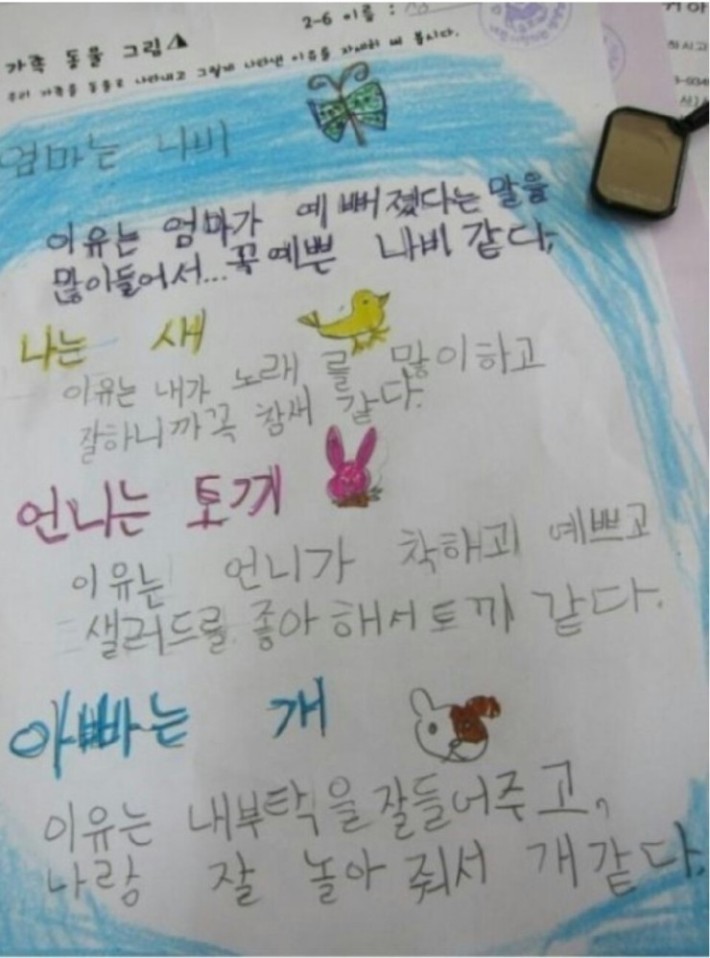 2-6 이름 :
가족 동물 그림
우리 가족을 동물로 나타내고 그렇게 나타낸 이유를 자세히 써 봅시다.
엄마는 나비
이유는 엄마가 예뻐졌다는 말을
많이들어서... 꼭예쁜 나비 같다,
나는 새
이유는 내가 노래를 많이하고
잘하니까꼭 참새 같다.
언니는 토끼
이유는 언니가 착해고 예쁘고
샐러드를 좋아해서토끼 같다.
아빠는 개
이유는 내부탁을 잘들어주고,
나랑 잘 놀아 줘서 개같다.